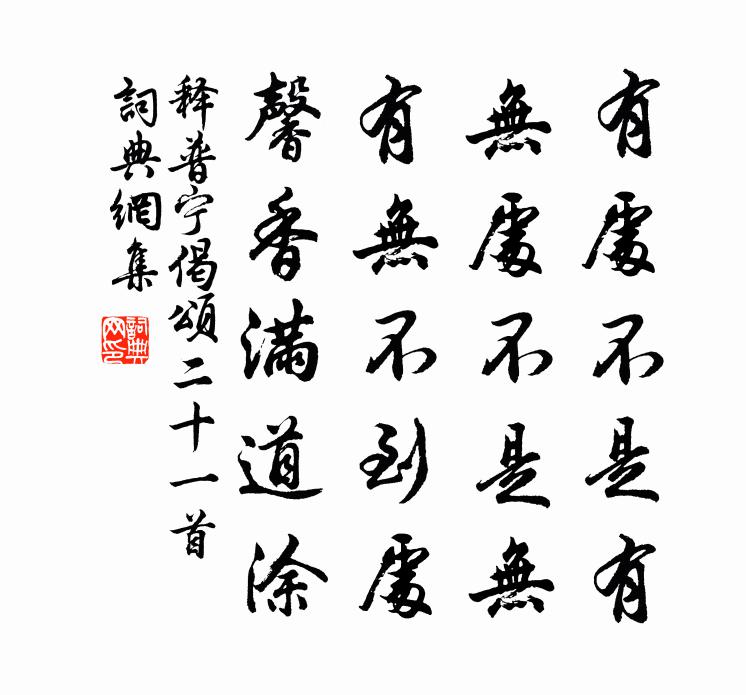 有處不是有
無處不是無
有無不到處
馨香滿道涂
释普宁偈頌二十一首
詞典網集
詞典网印